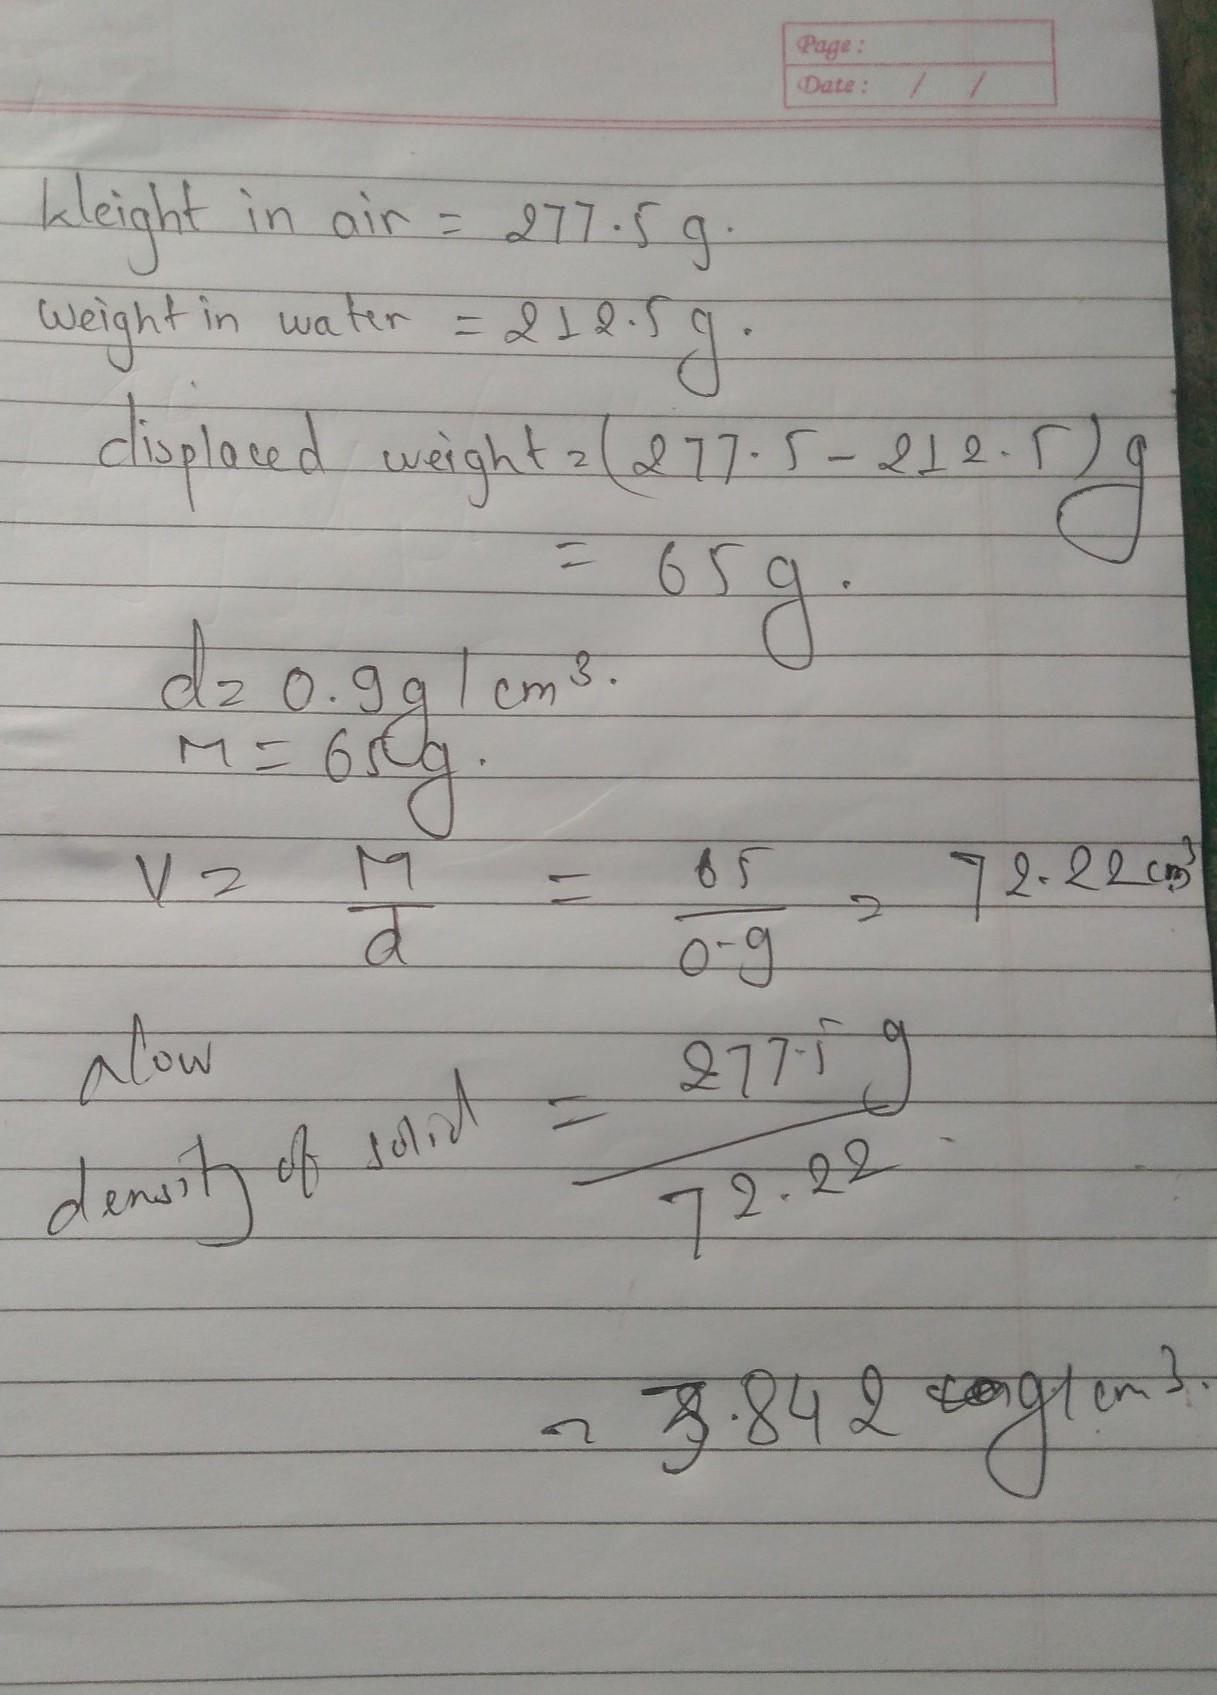 Page:
Date: / /
Weight in air = 277.5 g.
weight in water = 212.5 g.
displaced weight = (277.5 - 212.5) g
= 65 g.
d = 0.9 g/cm³.
M = 65 g.
V = M/d = 65/0.9 = 72.22 cm³
Now
density of solid = 277.5 g / 72.22
= 3.842 g/cm³.